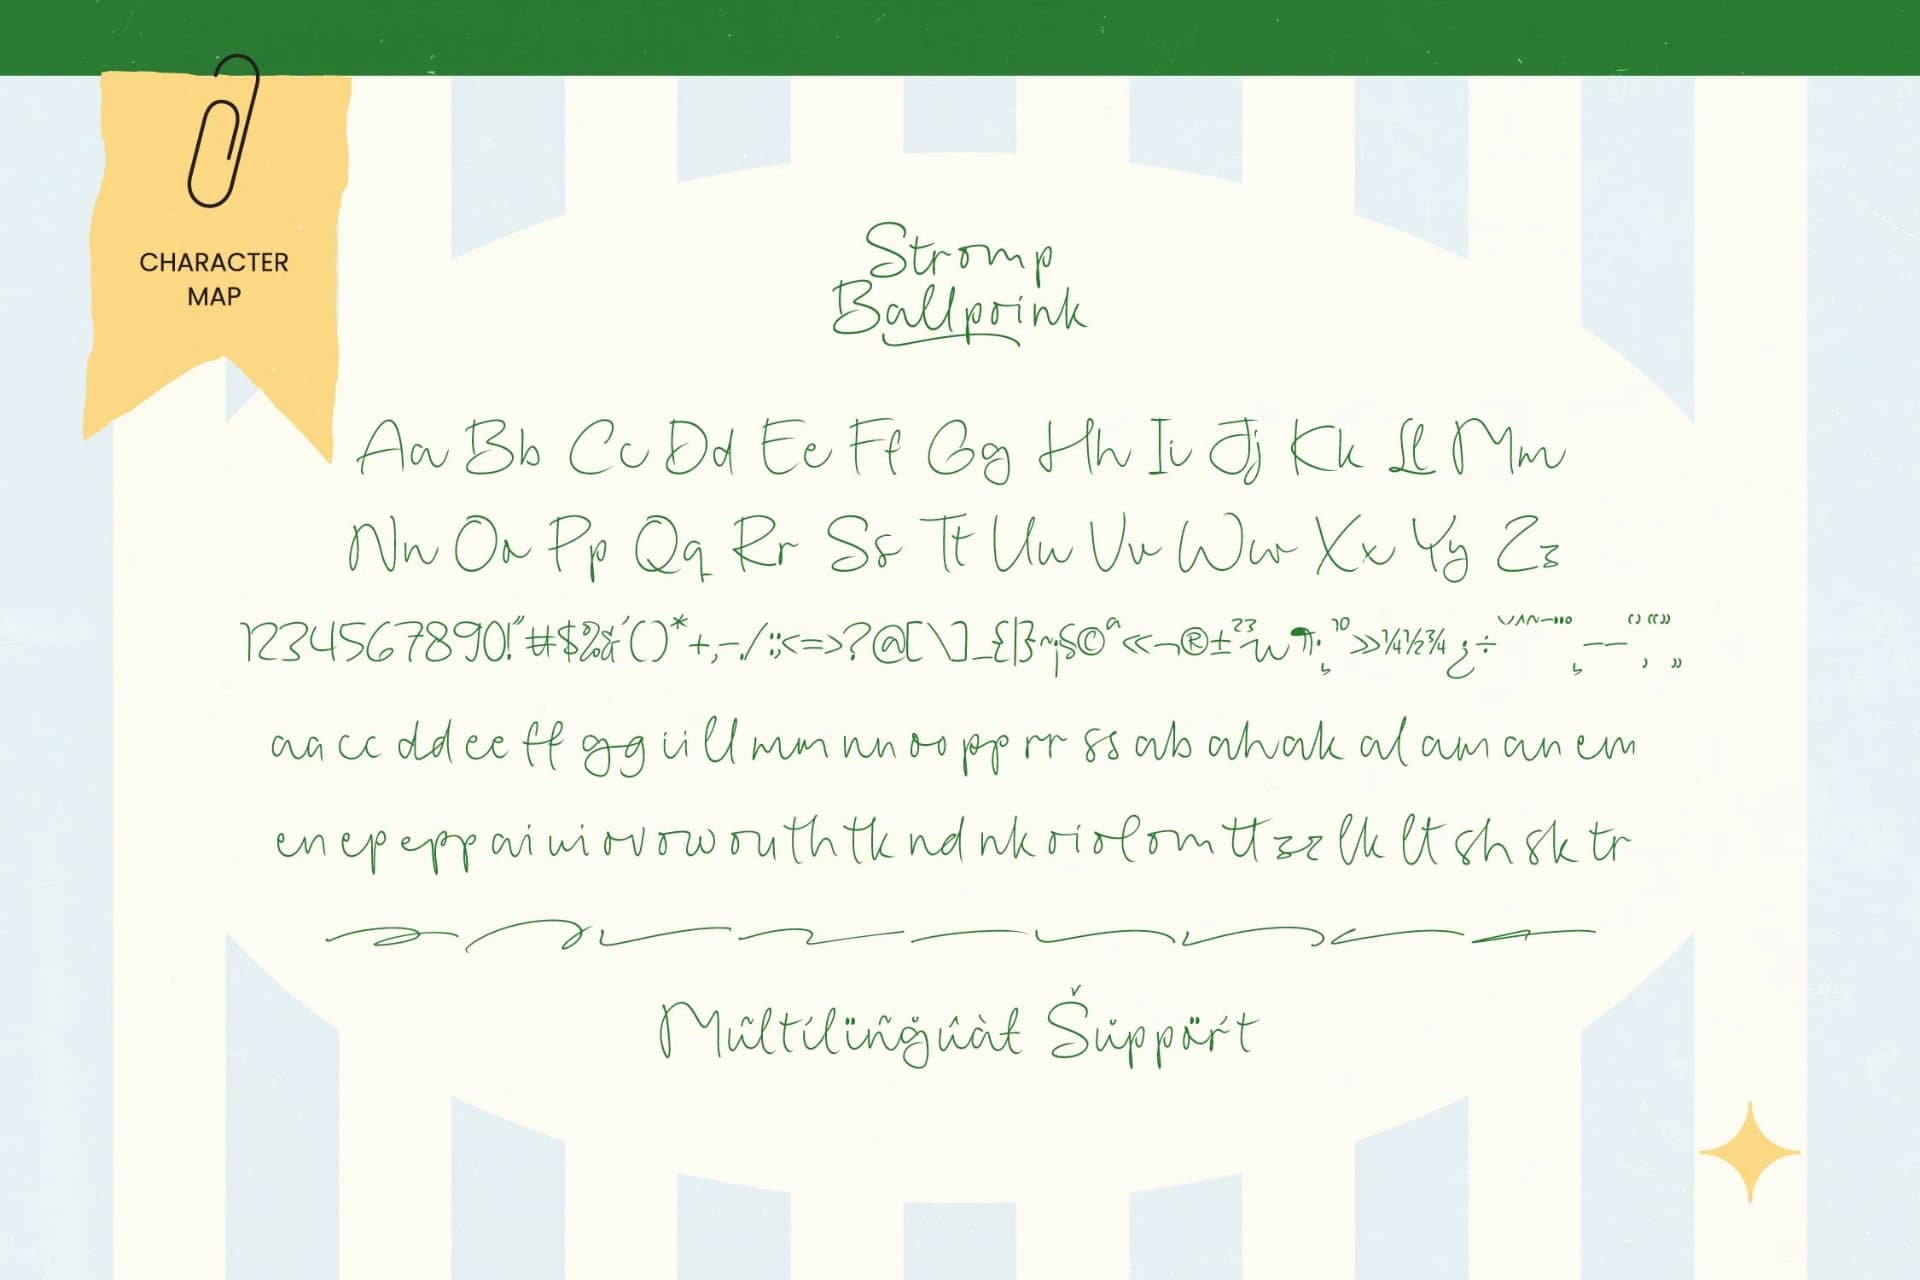 CHARACTER
MAP
Stromp
Ballpoink
Aa Bb Cc Dd Ee Ff Gg Hh Ii Jj Kk Ll Mm
Nn Oo Pp Qq Rr Ss Tt Uu Vv Ww Xx Yy Zz
1234567890!"#$%&'()*+,-./:;<=>?@[\]_{|}~¡§©ª«¬®±²³µ¶·¸¹º»¼½¾¿÷
aa cc dd ee ff gg ii ll mm nn oo pp rr ss ab ah ak al am an em
en ep epp ai ui ov ow ou th tk nd nk oi ol om tt zz lk lt sh sk tr
Mûltílïñġúàł Šůppäŕt